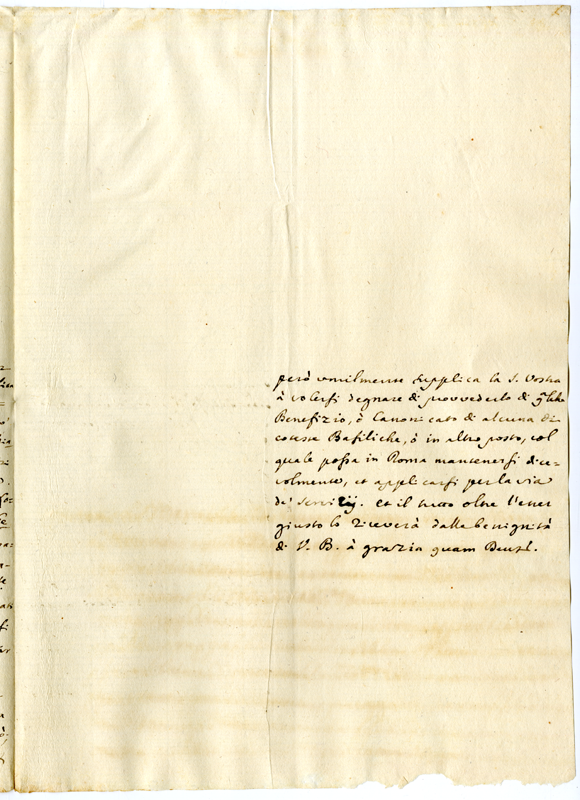 però umilmente supplica la S. Vostra
à volersi degnare di provvederlo di qche
Benefizio, ò Canonicato di alcuna di
coteste Basiliche, ò in altro posto, col
quale possa in Roma mantenersi dice-
volmente, et applicarsi per la via
de' servizij. et il tutto oltre l'esser
giusto lo riceverà dalla benignità
di V. B. à grazia quam Deus &.